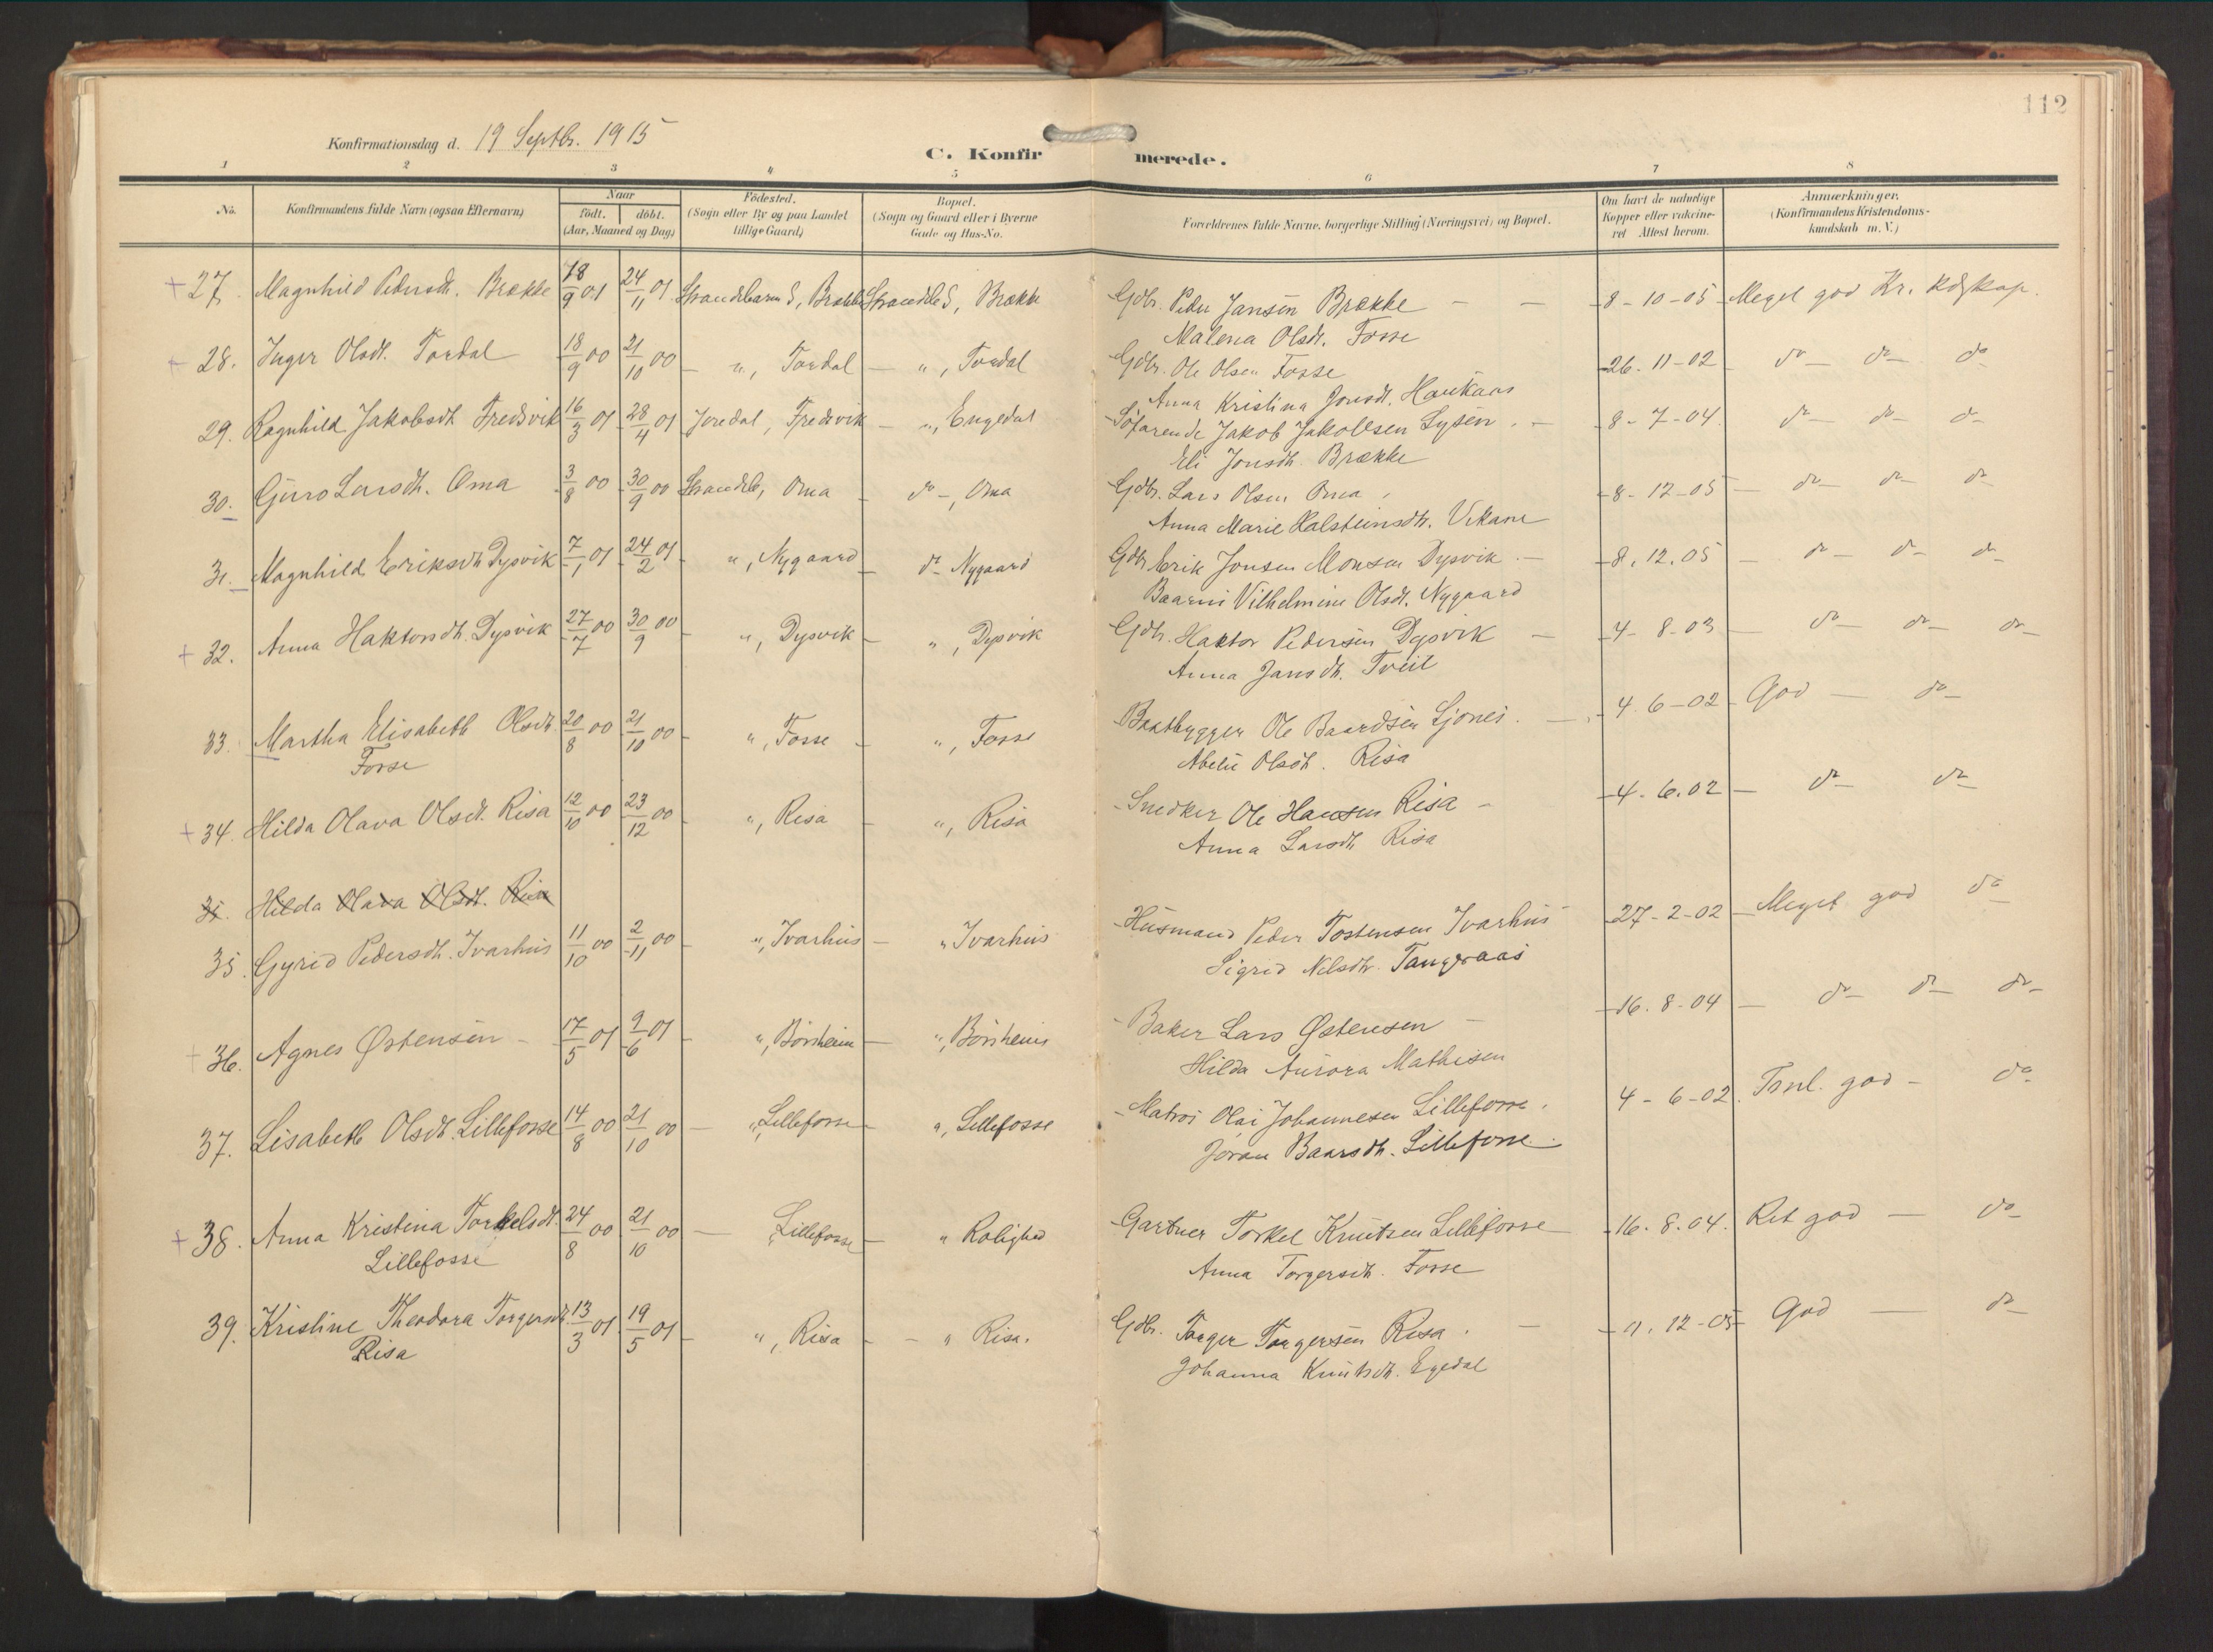 112
Konfirmationsdag d. 19 Septbr. 1915
C. Konfirmerede.
1 2 3 4 5 6 7 8
No. Konfirmandens fulde Navn (ogsaa Efternavn) Naar født. døbt. (Aar, Maaned og Dag) Fødested. (Sogn eller By og paa Landet tillige Gaard) Bopæl. (Sogn og Gaard eller i Byerne Gade og Hus-No. Forældrenes fulde Navne, borgerlige Stilling (Næringsvei) og Bopæl. Om havt de naturlige Kopper eller vaccineret Attest herom. Anmærkninger. (Konfirmandens Kristendomskundskab m. V.)
+ 27. Magnhild Pedersdt. Brække 18/9 01 24/11 01 Strandebarm S, Brække Strandeb S, Brække Gdbr. Peder Jansen Brække — — 8-10-05 Meget god Kr. kdskap.
Malena Olsdt. Fosse
+ 28. Inger Olsdt. Tordal 18/9 00 21/10 00 — ", Tordal — ", Tordal Gdbr. Ole Olsen Fosse 26. 11-02 do — do — do
Anna Kristina Jonsdt. Haukaas
29. Ragnhild Jakobsdt Fredsvik 16/3 01 28/4 01 Joredal, Fredsvik — ", Engedal Søfarende Jakob Jakobsen Lysen. — 8-7-04. do — do — do
Eli Jonsdt. Brække
30. Guro Larsdt. Oma 3/8 00 30/9 00 Strandeb, Oma — do —, Oma Gdbr. Lars Olsen Oma 8-12-05 — do — do — do
Anna Marie Halsteinsdt. Vikane
31. Magnhild Eriksdt Dysvik 7/1 01 24/2 01 ", Nygaard — do Nygaard Gdbr Erik Jonsen Monsen Dysvik — 8.12.05 — do — do — do
Baarni Vilhelmine Olsdt. Nygaard
+ 32. Anna Haktorsdt. Dysvik 27/7 00 30/9 00 — ", Dysvik — ", Dysvik Gdbr. Haktor Pedersen Dysvik — 4-8-03 — do — do — do
Anna Jansdt. Tveit
33. Martha Elisabeth Olsdt. 20/8 00 21/10 00 — ", Fosse — ", Fosse Baatbygger Ole Baardsen Ljones. — 4. 6-02 God — do
Fosse Abelü Olsdt. Risa
+ 34. Hilda Olava Olsdt. Risa 12/10 00 23/12 00 — ", Risa — ", Risa Snedker Ole Hansen Risa — 4-6.02 — do — do
Anna Larsdt Risa
35. Hilda Olava Olsdt. Risa
35. Gyrid Pedersdt. Ivarhus 11/10 00 2/11 00 — ", Ivarhus — " Ivarhus Husmand Peder Tostensen Ivarhus 27-2-02 — Meget god do
Sigrid Nilsdt. Tangeraas
+ 36. Agnes Østensen — 17/5 01 9/6 01 — ", Børsheim — ", Børsheim Baker Lars Østensen — 16.8-04 — do — do — do
Hilda Aurora Mathisen
37. Lisabeth Olsdt. Lillefosse 14/8 00 21/10 00 — " Lillefosse — ", Lillefosse Matros Olai Johannesen Lillefosse. 4-6-02. Tml. god — do
Joran Baarsdt. Lillefosse.
+ 38. Anna Kristina Torkelsdt. 24/8 00 21/10 00 — " Lillefosse — " Rolighed Gartner Torkel Knutsen Lillefosse — 16.8.04. Ret god — do
Lillefosse Anna Torgersdt. Fosse
39. Kristine Theodora Torgersdt 13/3 01 19/5 01 — ", Risa — " Risa. Gdbr. Torger Torgersen Risa. — 11.12-05 God — do
Risa Johanna Knutsdt. Egedal